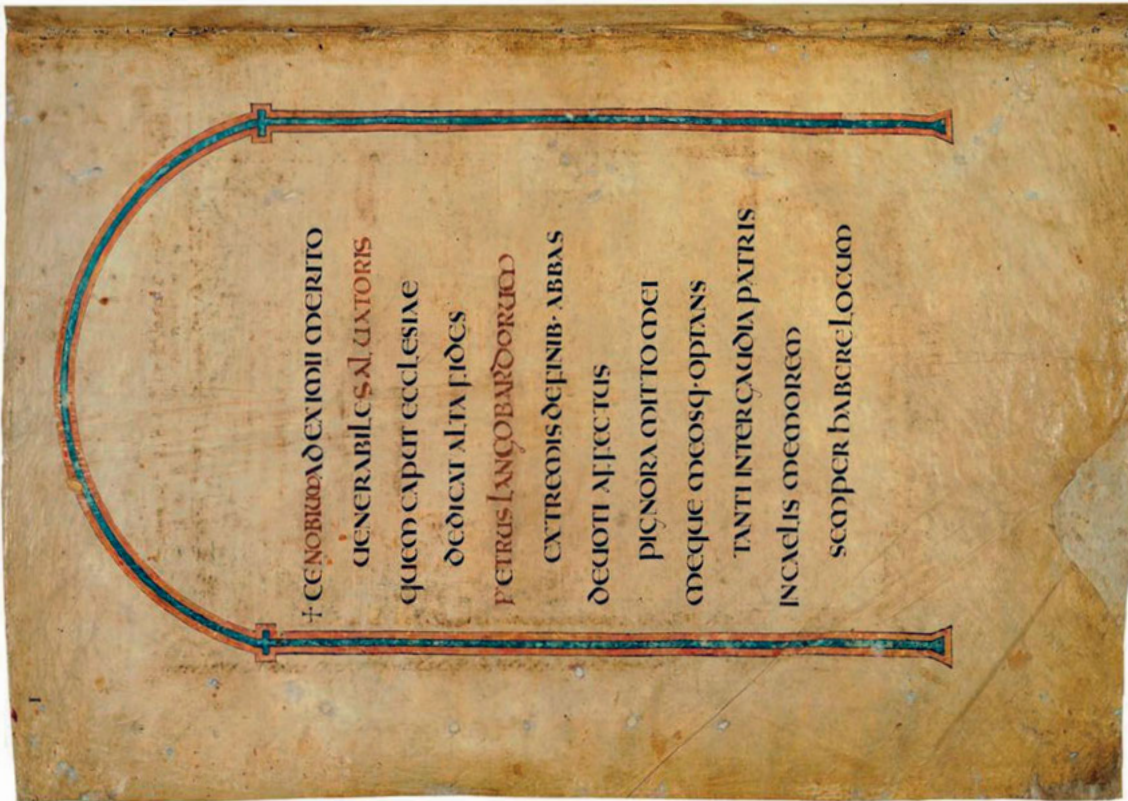 I
✝ CENOBIUM AD EXIMII MERITO
UENERABILE SALUATORIS
QUEM CAPUT ECCLESIAE
DEDICAT ALTA FIDES
PETRUS LANGOBARDORUM
EXTREMIS DE FINIB· ABBAS
DEUOTI AFFECTUS
PIGNORA MITTO MEI
MEQUE MEOSQ· OPTANS
TANTI INTER GAUDIA PATRIS
IN CAELIS MEMOREM
SEMPER HABERE LOCUM